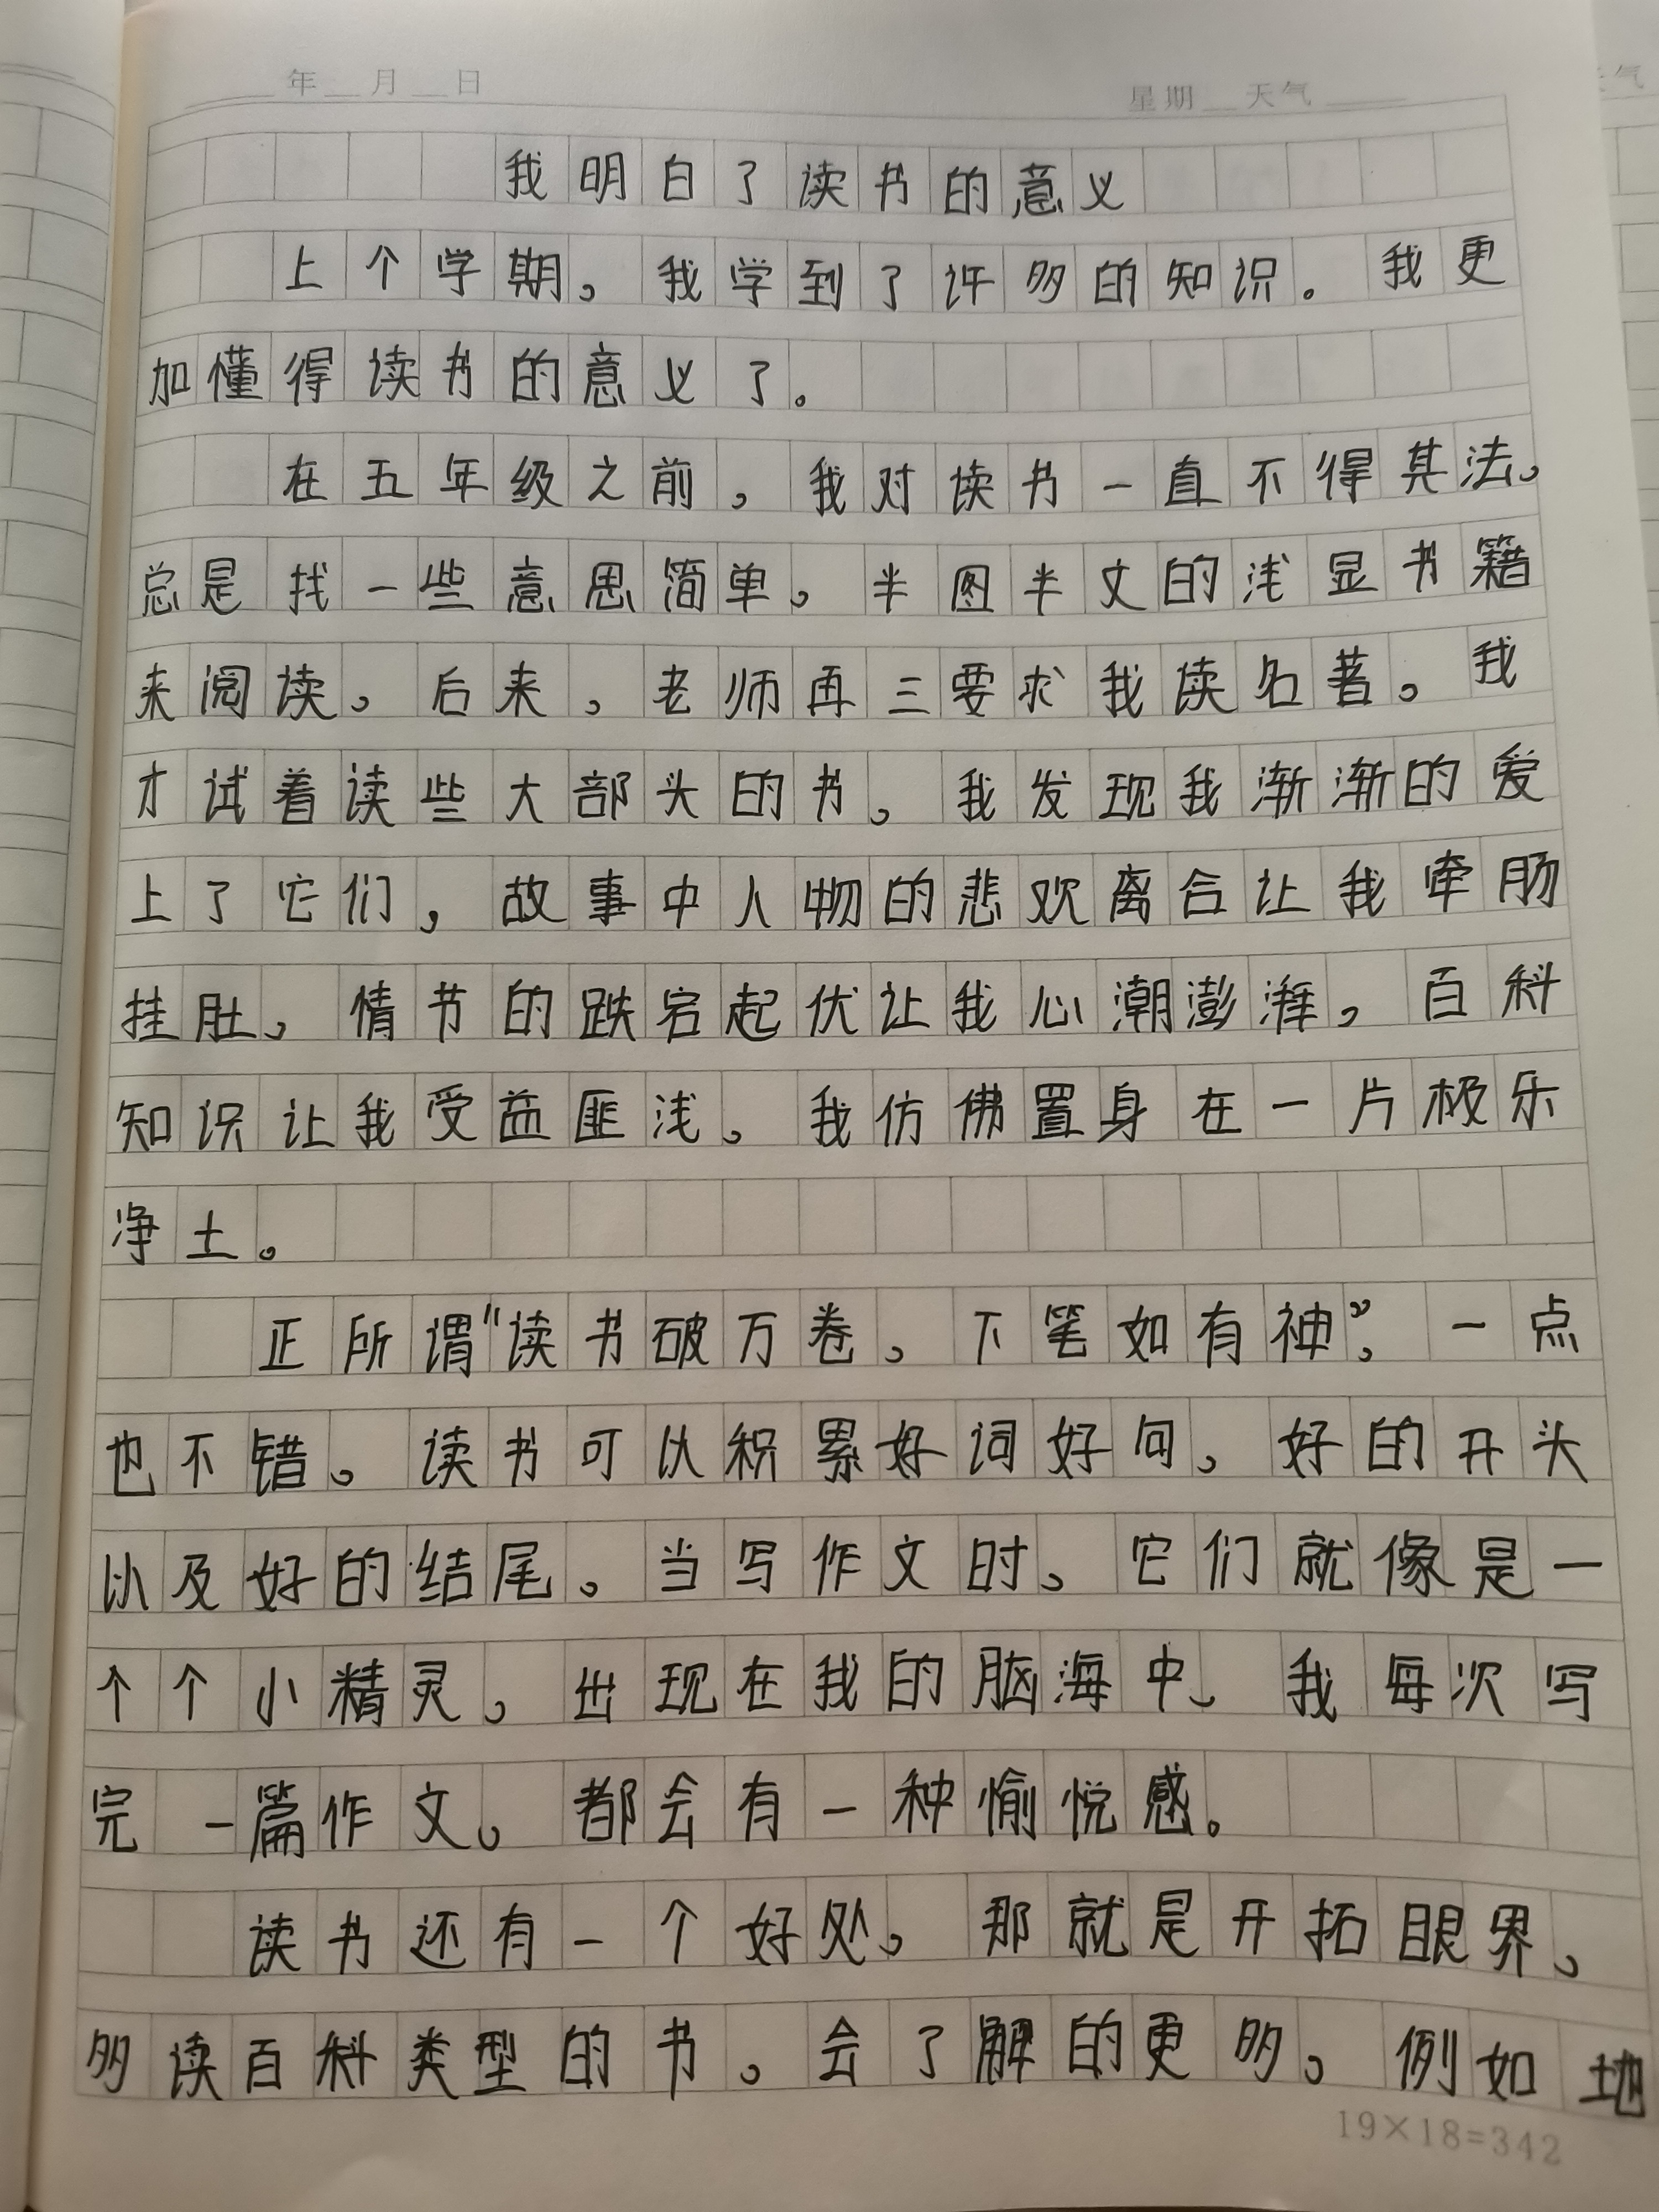 年 月 日 星期 天气
我明白了读书的意义
上个学期，我学到了许多的知识。我更
加懂得读书的意义了。
在五年级之前，我对读书一直不得其法，
总是找一些意思简单，半图半文的浅显书籍
来阅读，后来，老师再三要求我读名著。我
才试着读些大部头的书，我发现我渐渐的爱
上了它们，故事中人物的悲欢离合让我牵肠
挂肚，情节的跌宕起伏让我心潮澎湃，百科
知识让我受益匪浅，我仿佛置身在一片极乐
净土。
正所谓"读书破万卷，下笔如有神"，一点
也不错。读书可以积累好词好句，好的开头
以及好的结尾。当写作文时，它们就像是一
个个小精灵，出现在我的脑海中，我每次写
完一篇作文，都会有一种愉悦感。
读书还有一个好处，那就是开拓眼界，
多读百科类型的书，会了解的更多，例如地
19×18=342